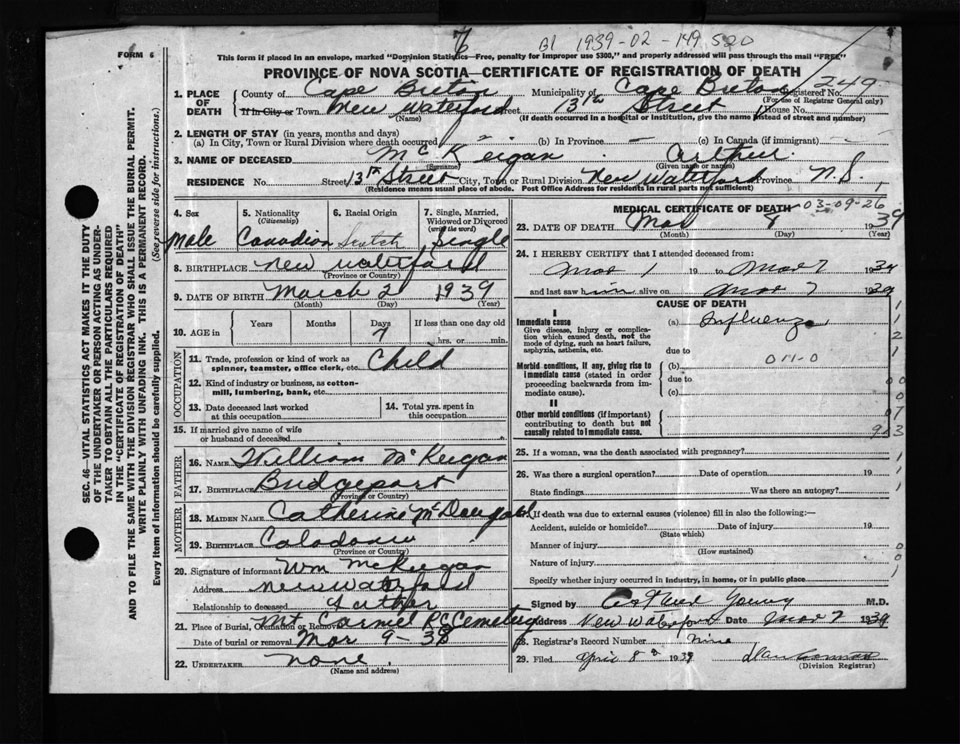 7
B1 1939-02-149520
FORM 6
This form if placed in an envelope, marked "Dominion Statistics—Free, penalty for improper use $300," and properly addressed will pass through the mail "FREE"
PROVINCE OF NOVA SCOTIA—CERTIFICATE OF REGISTRATION OF DEATH
1. PLACE OF DEATH County of Cape Breton Municipality of Cape Breton Registered No. 1249
(For use of Registrar General only)
If in City or Town New Waterford Street 13th Street House No.
(Name) (If death occurred in a hospital or institution, give the name instead of street and number)
2. LENGTH OF STAY (in years, months and days)
(a) In City, Town or Rural Division where death occurred (b) In Province (c) In Canada (if immigrant)
3. NAME OF DECEASED McKeigan Arthur
(Surname) (Given name or names)
RESIDENCE No. Street 13th Street City, Town or Rural Division New Waterford Province N.S.
(Residence means usual place of abode. Post Office Address for residents in rural parts not sufficient)
4. Sex 5. Nationality (Citizenship) 6. Racial Origin 7. Single, Married, Widowed or Divorced (write the word)
Male Canadian Scotch Single
8. BIRTHPLACE New Waterford
(Province or Country)
9. DATE OF BIRTH March 2 1939
(Month) (Day) (Year)
10. AGE in Years Months Days If less than one day old
7 hrs. or min.
OCCUPATION
11. Trade, profession or kind of work as spinner, teamster, office clerk, etc. Child
12. Kind of industry or business, as cotton-mill, lumbering, bank, etc.
13. Date deceased last worked at this occupation
14. Total yrs. spent in this occupation
15. If married give name of wife or husband of deceased
FATHER
16. NAME William McKeigan
17. BIRTHPLACE Bridgeport
(Province or Country)
MOTHER
18. MAIDEN NAME Catherine McDougald
19. BIRTHPLACE
(Province or Country)
20. Signature of informant Wm McKeigan
Address New Waterford
Relationship to deceased Father
21. Place of Burial, Cremation or Removal Mt Carmel R.C. Cemetery
Date of burial or removal Mar 9-38
22. UNDERTAKER none.
(Name and address)
MEDICAL CERTIFICATE OF DEATH
03-09-26
23. DATE OF DEATH Mar 1939
(Month) (Day) (Year)
24. I HEREBY CERTIFY that I attended deceased from:
Mar 1 19 to Mar 7 1939
and last saw him alive on Mar 7 1939
CAUSE OF DEATH
I
Immediate cause
Give disease, injury or complication which caused death, not the mode of dying, such as heart failure, asphyxia, asthenia, etc.
(a) Influenza
due to
Morbid conditions, if any, giving rise to immediate cause (stated in order proceeding backwards from immediate cause).
(b) 011-0
due to
(c)
II
Other morbid conditions (if important) contributing to death but not causally related to immediate cause.
25. If a woman, was the death associated with pregnancy?
26. Was there a surgical operation? Date of operation 19
State findings Was there an autopsy?
27. If death was due to external causes (violence) fill in also the following:—
Accident, suicide or homicide? Date of injury 19
(State which)
Manner of injury
(How sustained)
Nature of injury
Specify whether injury occurred in industry, in home, or in public place
Signed by Young M.D.
Address New Waterford Date Mar 7 1939
28. Registrar's Record Number Nine
29. Filed April 8 1939
(Division Registrar)
SEC. 46—VITAL STATISTICS ACT MAKES IT THE DUTY
OF THE UNDERTAKER OR PERSON ACTING AS UNDER-
TAKER TO OBTAIN ALL THE PARTICULARS REQUIRED
IN THE "CERTIFICATE OF REGISTRATION OF DEATH"
AND TO FILE THE SAME WITH THE DIVISION REGISTRAR WHO SHALL ISSUE THE BURIAL PERMIT.
WRITE PLAINLY WITH UNFADING INK. THIS IS A PERMANENT RECORD.
Every item of information should be carefully supplied. (See reverse side for instructions.)